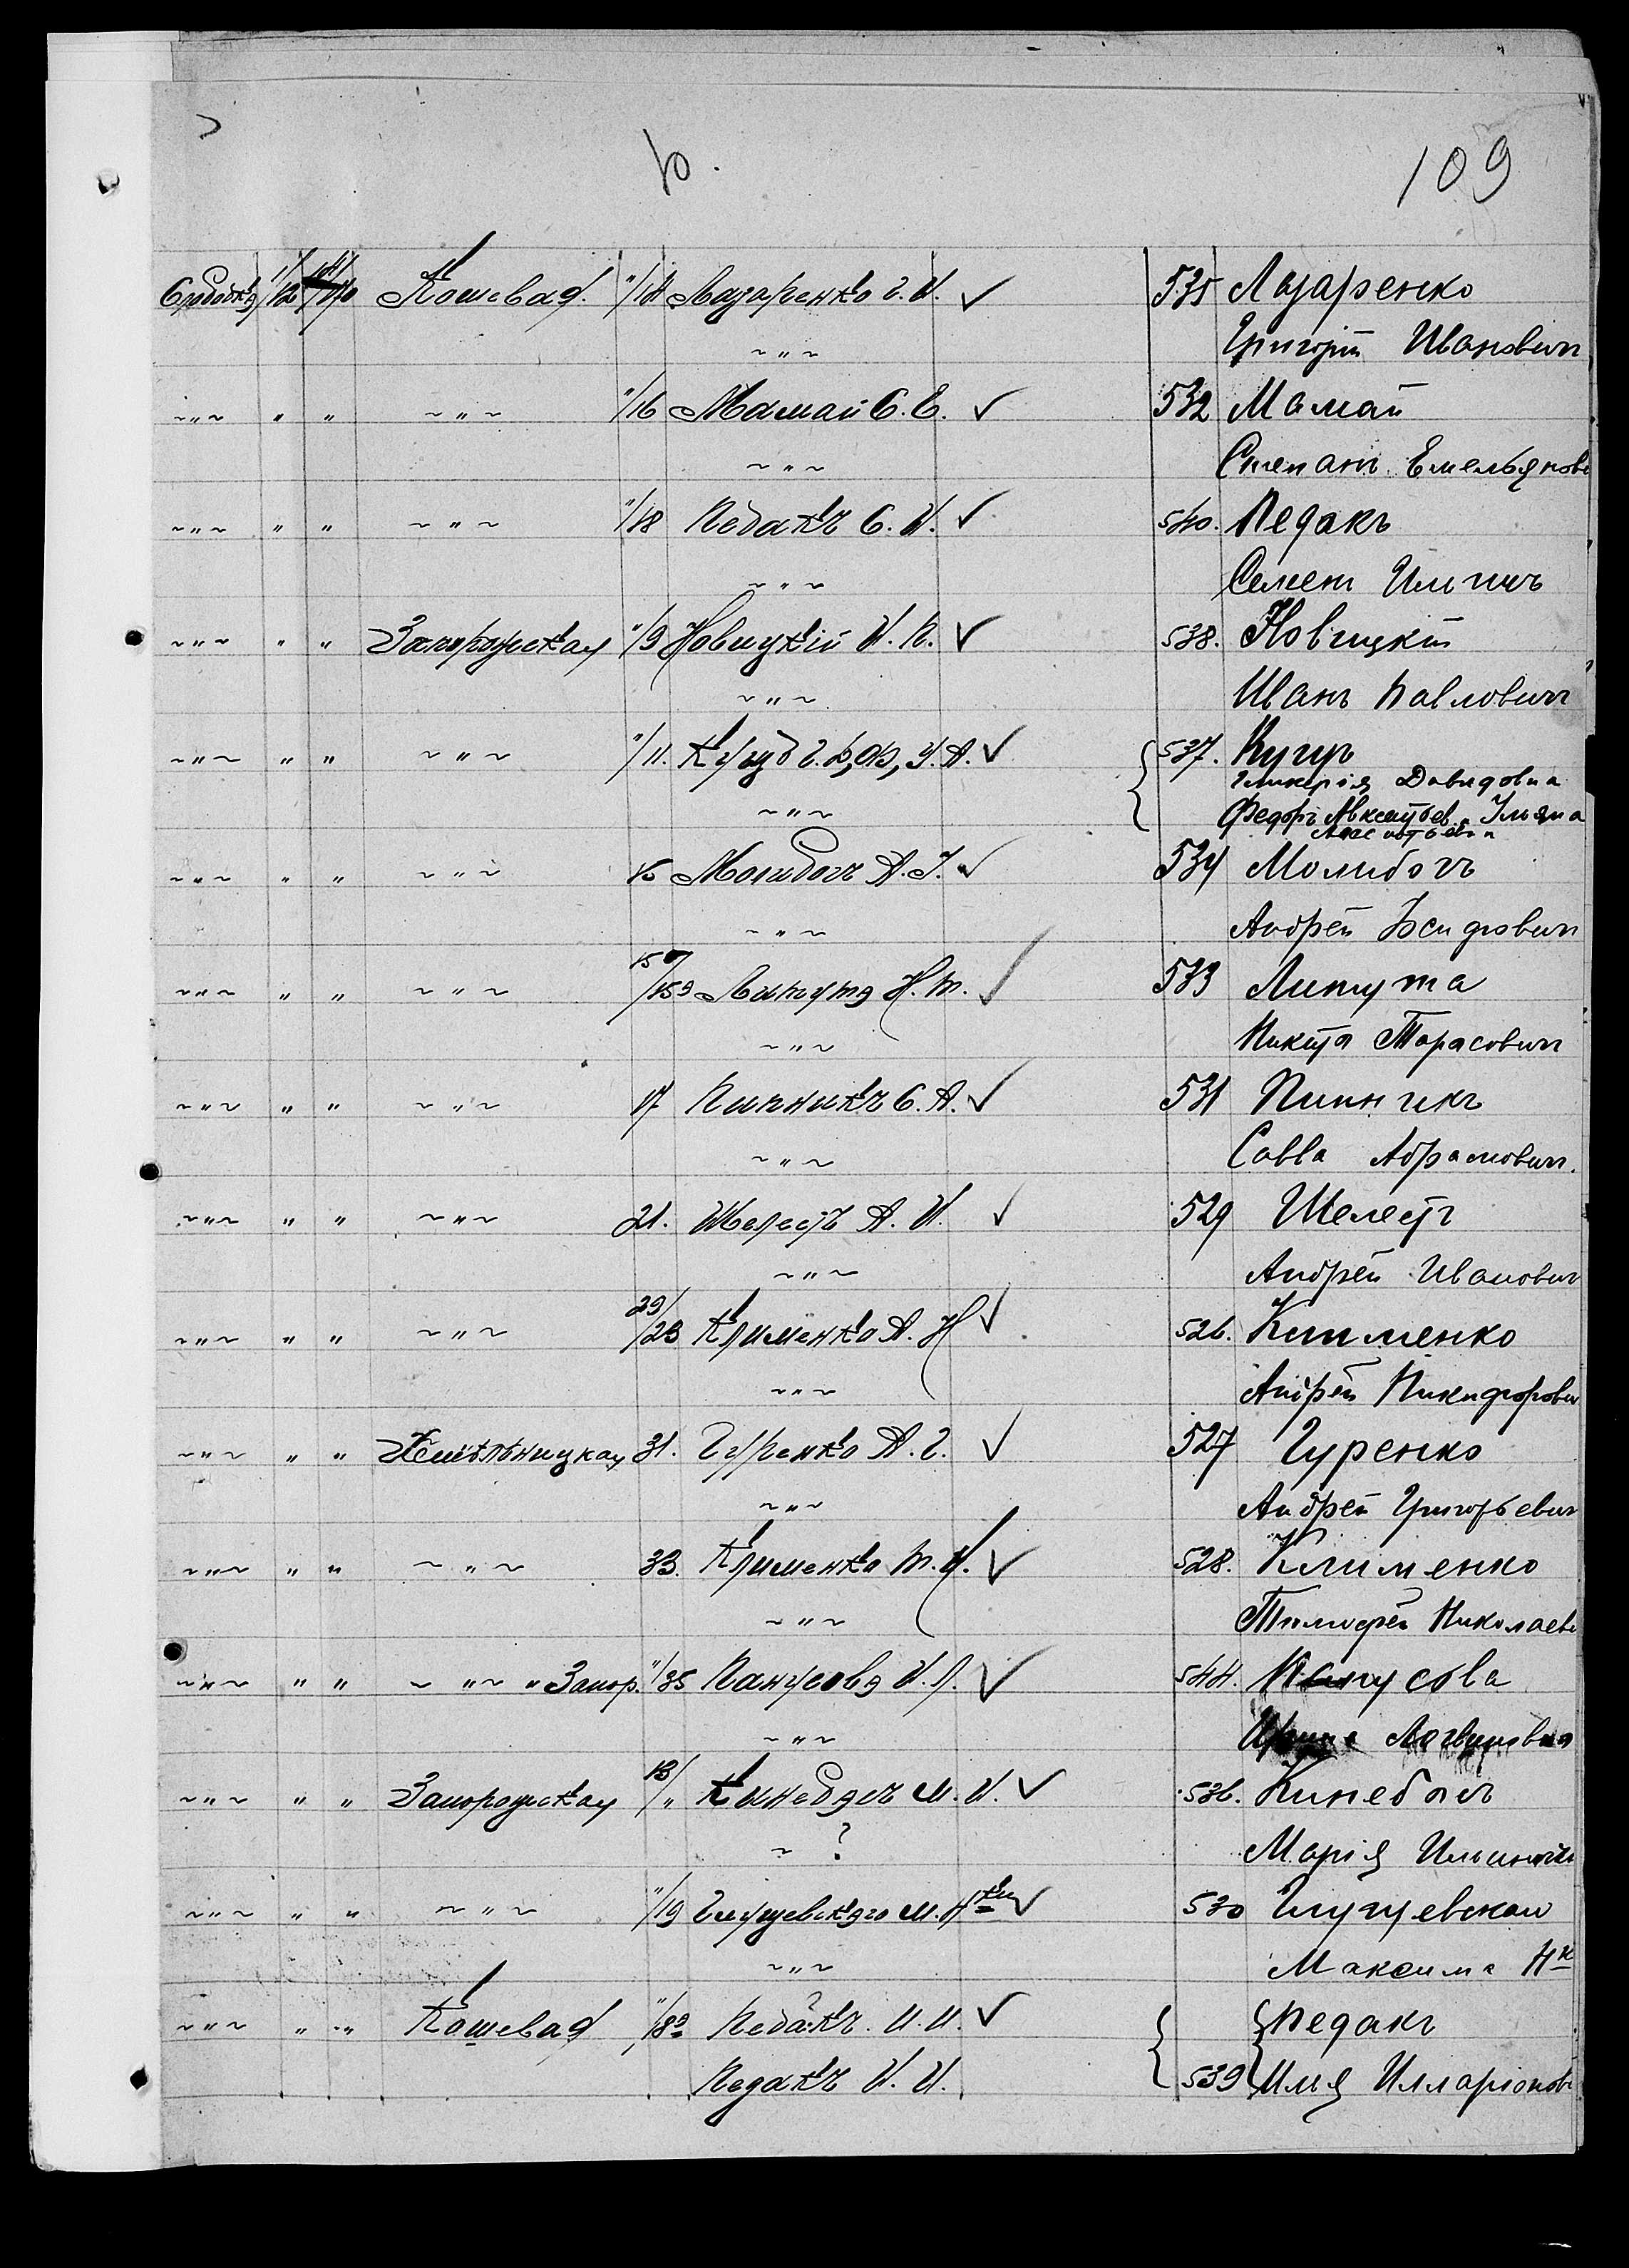 10. 109
Слободка Кошевая. "/14 Лазаренко Г. И. ✓ 535 Лазаренко
~"~ Григорій Ивановичъ
~"~ " " ~"~ "/16 Мамай С. Е. ✓ 532 Мамай
~"~ Степанъ Емельянови
~"~ " " ~"~ "/18 Педакъ С. И. ✓ 540. Педакъ
~"~ Семенъ Ильичъ
~"~ " " Запорожская "/9 Новицкій И. П. ✓ 538. Новицкій
~"~ Иванъ Павловичъ
~"~ " " ~"~ "/11. Г. Д, Ф, У. А. ✓ 537.
~"~ Гликерія Давидовна
Федоръ Авксентьев. Ульяна
~"~ " " ~"~ 15 Молибогъ А. І. ✓ 534 Молибогъ
~"~ Андрей Исидровичъ
~"~ " " ~"~ 157/159 Липута Н. Т. ✓ 533 Липута
~"~ Никита Тарасовичъ
~"~ " " ~"~ 17 Пипникъ С. А. ✓ 531 Пипникъ
~"~ Савва Абрамовичъ.
~"~ " " ~"~ 21. Шелестъ А. И. ✓ 529 Шелестъ
~"~ Андрей Ивановичъ
~"~ " " ~"~ 29/23 Клименко А. Н ✓ 526. Клименко
~"~ Андрей Никифорович
~"~ " " Хмельницкая 31. Гуренко А. Г. ✓ 527 Гуренко
~"~ Андрей Григорьевич
~"~ " " ~"~ 33. Клименко Т. Н. ✓ 528. Клименко
~"~ Тимофей Николаеви
~"~ " " ~"~ " Запор. "/35 Панусова И. Л. ✓ 544. Панусова
~"~ Ирина Логвиновна
~"~ " " Запорожская 13/" Кинебасъ М. И. ✓ 536. Кинебасъ
~ ? Марія Ильинична
~"~ " " ~"~ "/19 М. Н-ки ✓ 530
~"~ Максима Н-к
~"~ " " Кошевая "/8а Педакъ. И. И. ✓ Педакъ
Педакъ И. И. 539 Илья Илларіонов